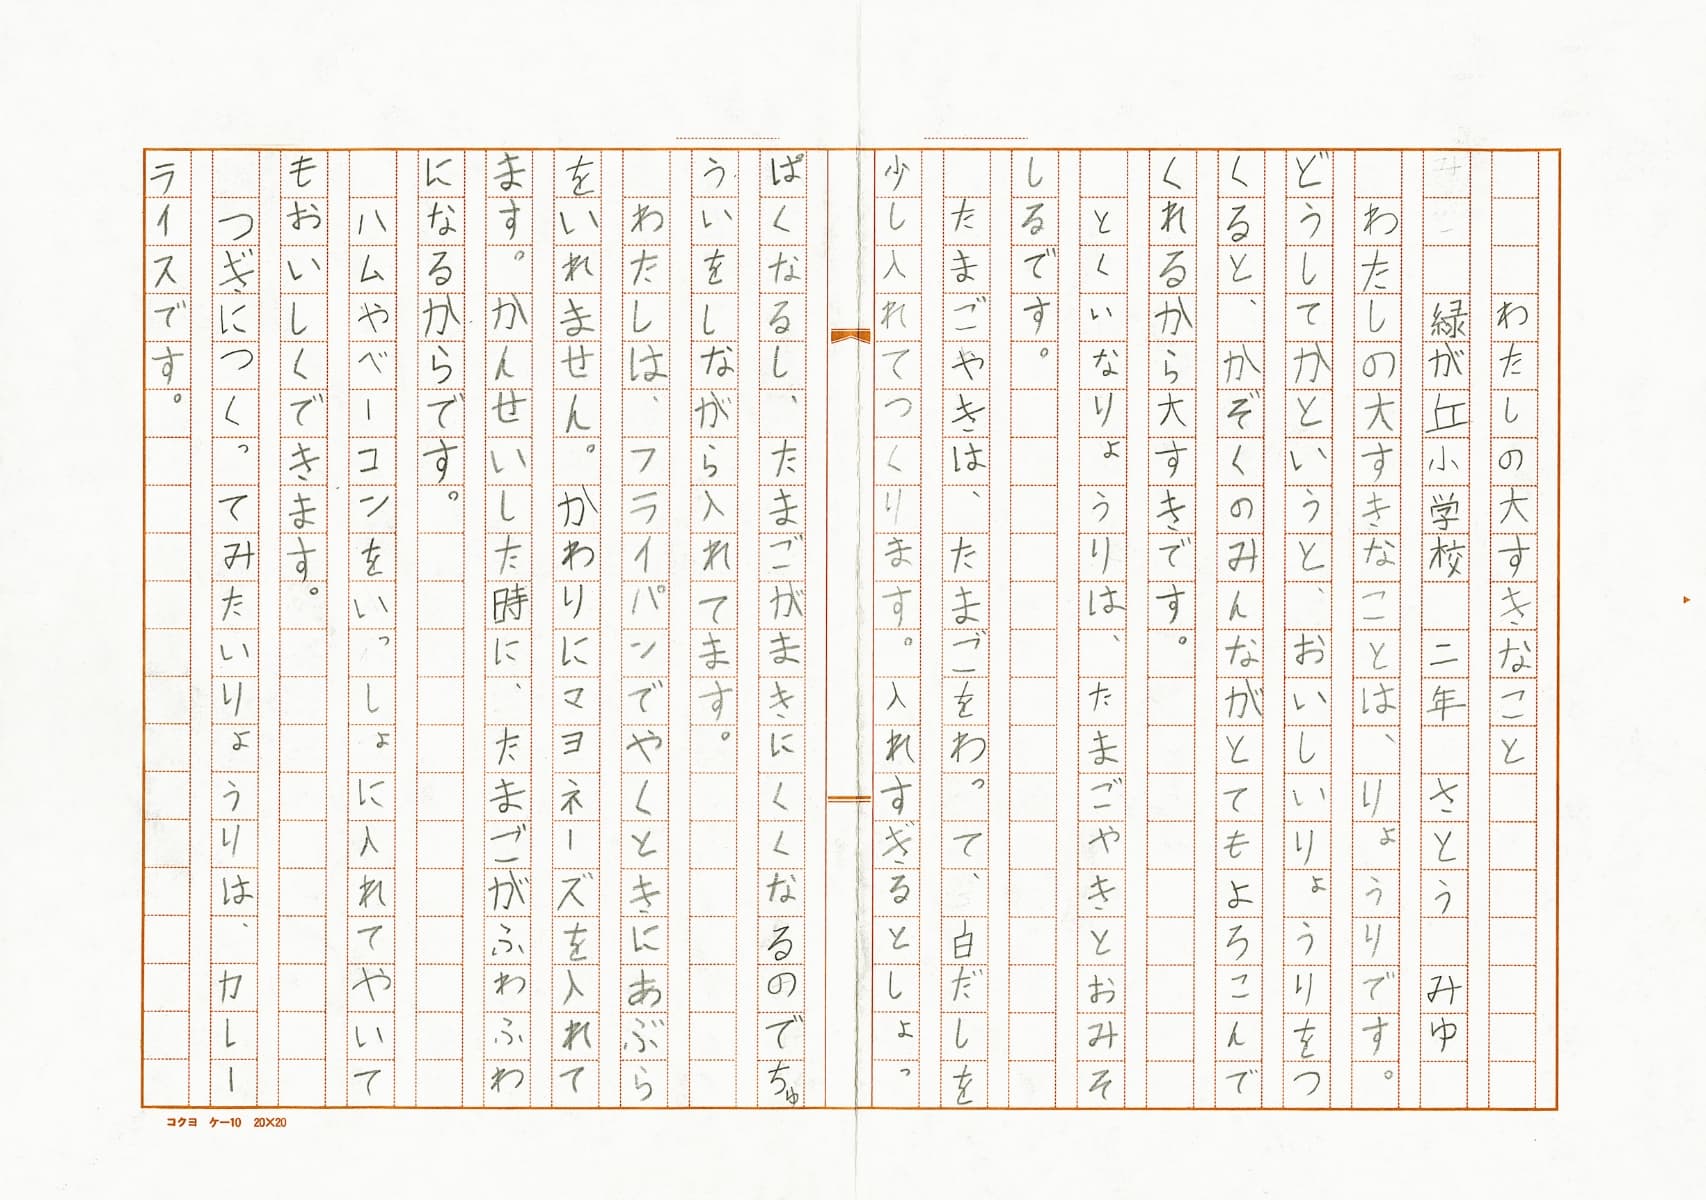 わたしの大すきなこと
緑が丘小学校 二年 さとう みゆ
わたしの大すきなことは、りょうりです。
どうしてかというと、おいしいりょうりをつ
くると、かぞくのみんながとてもよろこんで
くれるから大すきです。
とくいなりょうりは、たまごやきとおみそ
しるです。
たまごやきは、たまごをわって、白だしを
少し入れてつくります。入れすぎるとしょっ
ぱくなるし、たまごがまきにくくなるのでちゅ
ういをしながら入れてます。
わたしは、フライパンでやくときにあぶら
をいれません。かわりにマヨネーズを入れて
ます。かんせいした時に、たまごがふわふわ
になるからです。
ハムやベーコンをいっしょに入れてやいて
もおいしくできます。
つぎにつくってみたいりょうりは、カレー
ライスです。
コクヨ ケー10 20×20